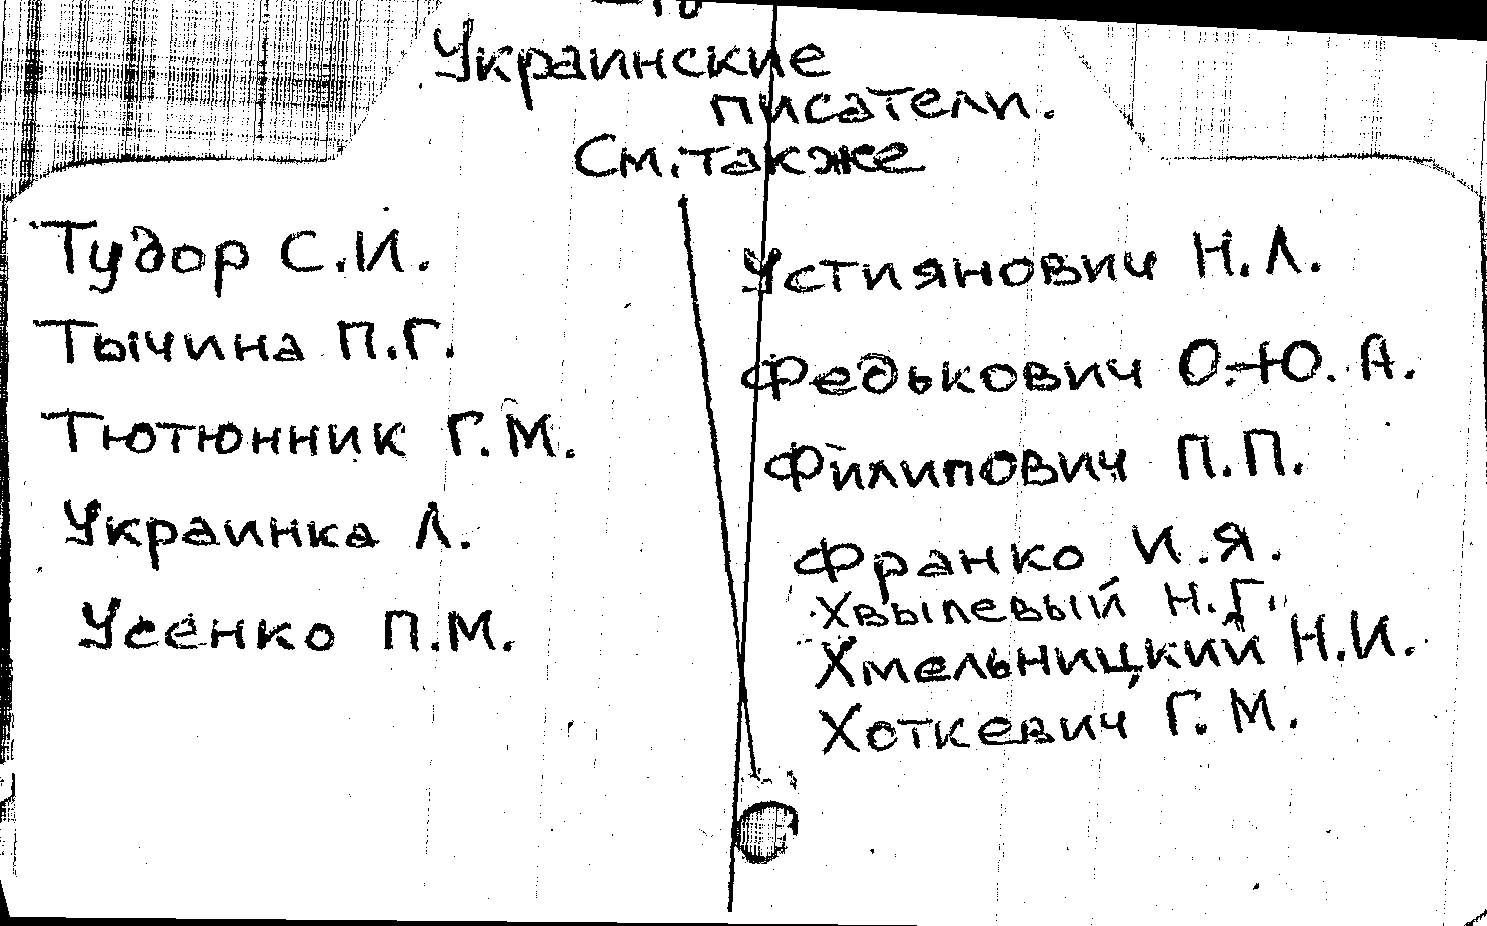 Украинские
писатели.
См. также
Тудор С.И.
Тычина П.Г.
Тютюнник Г.М.
Украинка Л.
Усенко П.М.
Устиянович Н.Л.
Федькович О.-Ю. А.
Филипович П.П.
Франко И.Я.
Хвылевый Н.Г.
Хмельницкий Н.И.
Хоткевич Г.М.